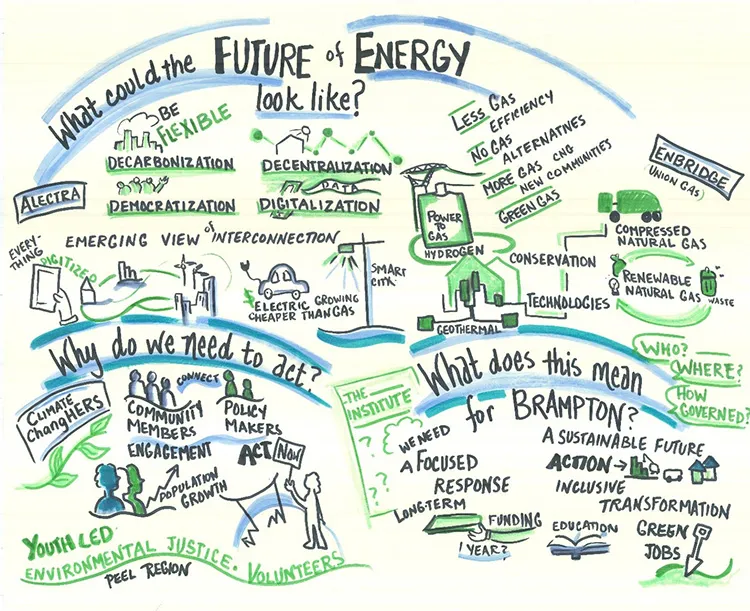 What could the FUTURE of ENERGY
look like?
BE
FLEXIBLE
DECARBONIZATION
DECENTRALIZATION
ALECTRA
DEMOCRATIZATION
DATA
DIGITALIZATION
EMERGING VIEW of INTERCONNECTION
EVERY-
THING
DIGITIZED
ELECTRIC GROWING
CHEAPER THAN GAS
SMART
CITY
LESS GAS
EFFICIENCY
NO GAS
ALTERNATIVES
MORE GAS CNG
NEW COMMUNITIES
GREEN GAS
ENBRIDGE
UNION GAS
POWER
TO
GAS
HYDROGEN
COMPRESSED
NATURAL GAS
CONSERVATION
RENEWABLE
NATURAL GAS
WASTE
TECHNOLOGIES
GEOTHERMAL
Why do we need to act?
CLIMATE
ChangHERS
CONNECT
COMMUNITY
MEMBERS
POLICY
MAKERS
ENGAGEMENT
ACT NOW
POPULATION
GROWTH
YOUTH LED
ENVIRONMENTAL JUSTICE. VOLUNTEERS
PEEL REGION
What does this mean
for BRAMPTON?
WHO?
WHERE?
HOW
GOVERNED?
THE
INSTITUTE
?
?
? ?
?
WE NEED
A FOCUSED
RESPONSE
LONG-TERM
FUNDING
1 YEAR?
A SUSTAINABLE FUTURE
ACTION
INCLUSIVE
TRANSFORMATION
EDUCATION
GREEN
JOBS